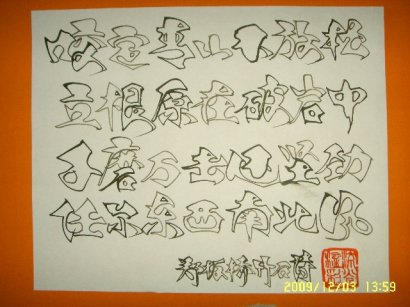 咬定青山不放松
立根原在破岩中
千磨万击还坚劲
任尔东西南北风
郑板桥竹石诗
2009/12/03 13:59